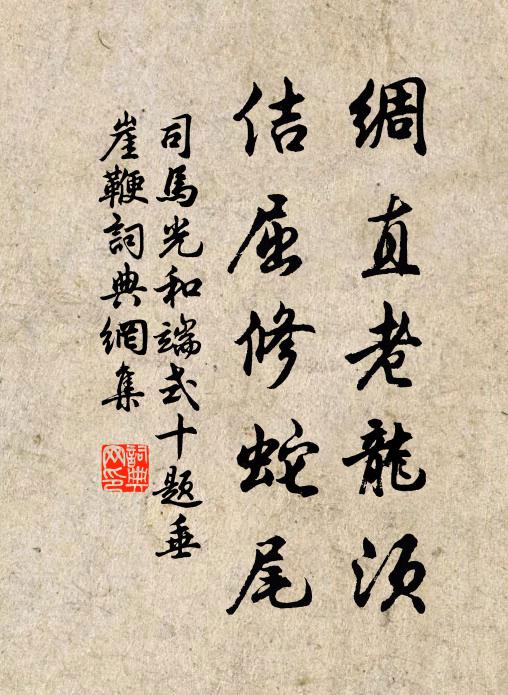 綢直老龍須
佶屈修蛇尾
司馬光和端式十題垂
崖鞭詞典網集
詞典网印